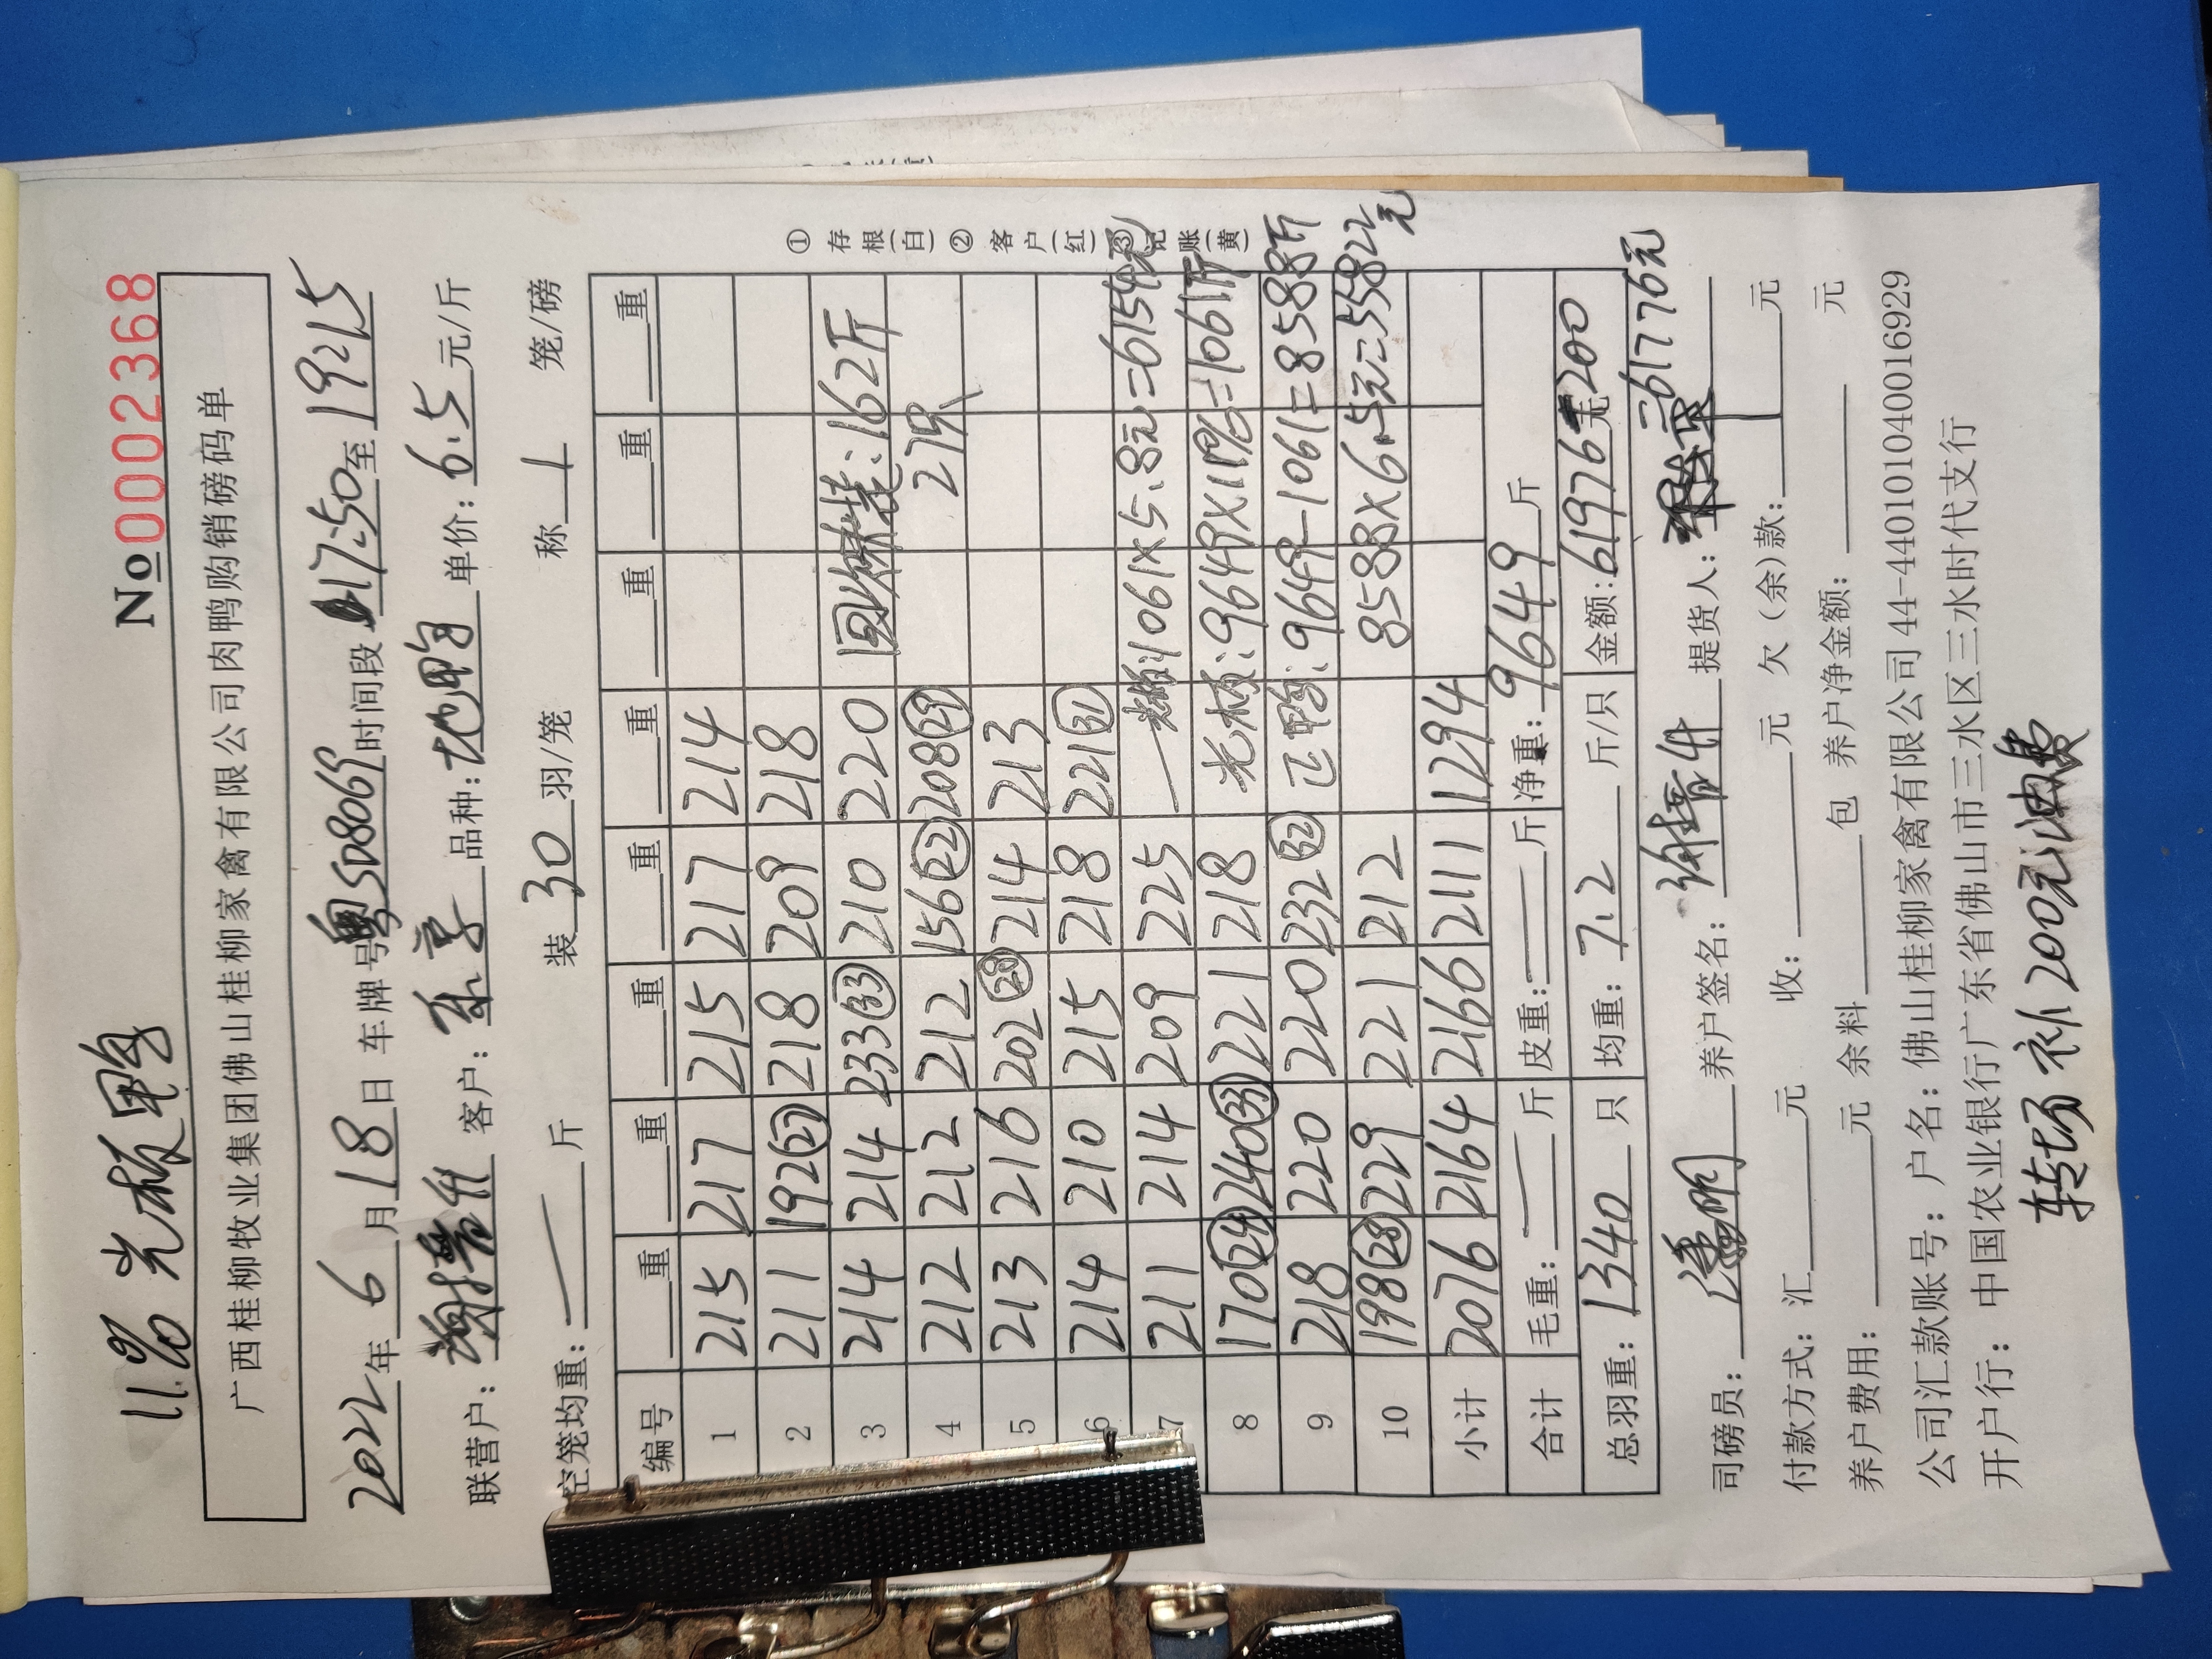 11% 光板鸭
No 0002368
广西桂柳牧业集团佛山桂柳家禽有限公司肉鸭购销磅码单
2022年6月18日 车牌号粤SD8069时间段 17:50至19:15
联营户: 客户: 品种: 单价: 6.5元/斤
空笼均重: 斤 装30羽/笼 称1笼/磅
编号 重 重 重 重 重 重 重 重
1 215 217 215 217 214
2 211 192(27) 218 209 218
3 214 214 233(33) 210 220 回 装:162斤
4 212 212 212 156(22) 208(29) 27只
5 213 216 202(28) 214 213
6 214 210 215 218 221(31)
7 211 214 209 225 1061×5.8元=6154元
8 170(24) 240(33) 221 218 光板:9649×11%=1061斤
9 218 220 220 232(32) 正鸭:9649-1061=8588斤
10 198(28) 229 221 212 8588×6.5元=55822元
小计 2076 2164 2166 2111 1294
合计 毛重: 斤 皮重: 斤 净重: 9649斤
总羽重: 1340只 均重: 7.2斤/只 金额: 61976元-200
=61776元
司磅员: 养户签名: 提货人:
付款方式: 汇 元 收: 元 欠(余)款: 元
养户费用: 元 余料 包 养户净金额: 元
公司汇款账号: 户名: 佛山桂柳家禽有限公司 44-440101040016929
开户行: 中国农业银行广东省佛山市三水区三水时代支行
转场补200元油费
①存根(白)②客户(红)③记账(黄)